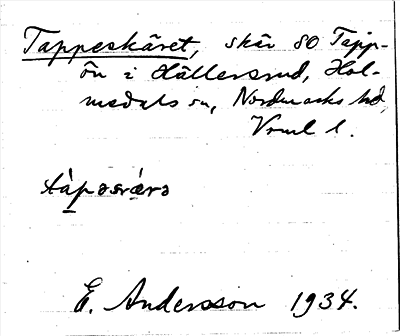 Tappeskäret, skär SO Tapp-
ön i Hällersrud, Hol-
medals sn, Nordmarks hd,
Vrml l.
E. Andersson 1934.